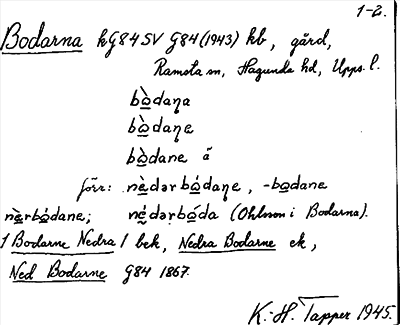 1-2.
Bodarna kG84SV G84(1943) kb, gård,
Ramsta sn, Hagunda hd, Upps. l.
bò̲daƞa
bò̲daƞe
bò̲dane å
förr: nè̲dər bó̲daƞe, -bo̲dane
nè̲rbó̲dane; né̲dərbó̲da (Ohlsson i Bodarna).
/ Bodarne Nedra / bek, Nedra Bodarne ek,
Ned Bodarne G84 1867.
K.-H. Tapper 1945.